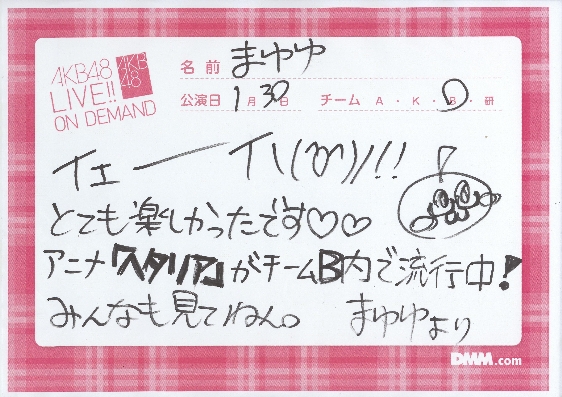 AKB48
LIVE!!
ON DEMAND
AKB
48
名前 まゆゆ
公演日 1月30日 チーム A・K・B・研
イエーイ\(^o^)/!!
とても楽しかったです♡♡
アニナ「ヘタリア」がチームB内で流行中!
みんなも見てねん。 まゆゆより
DMM.com